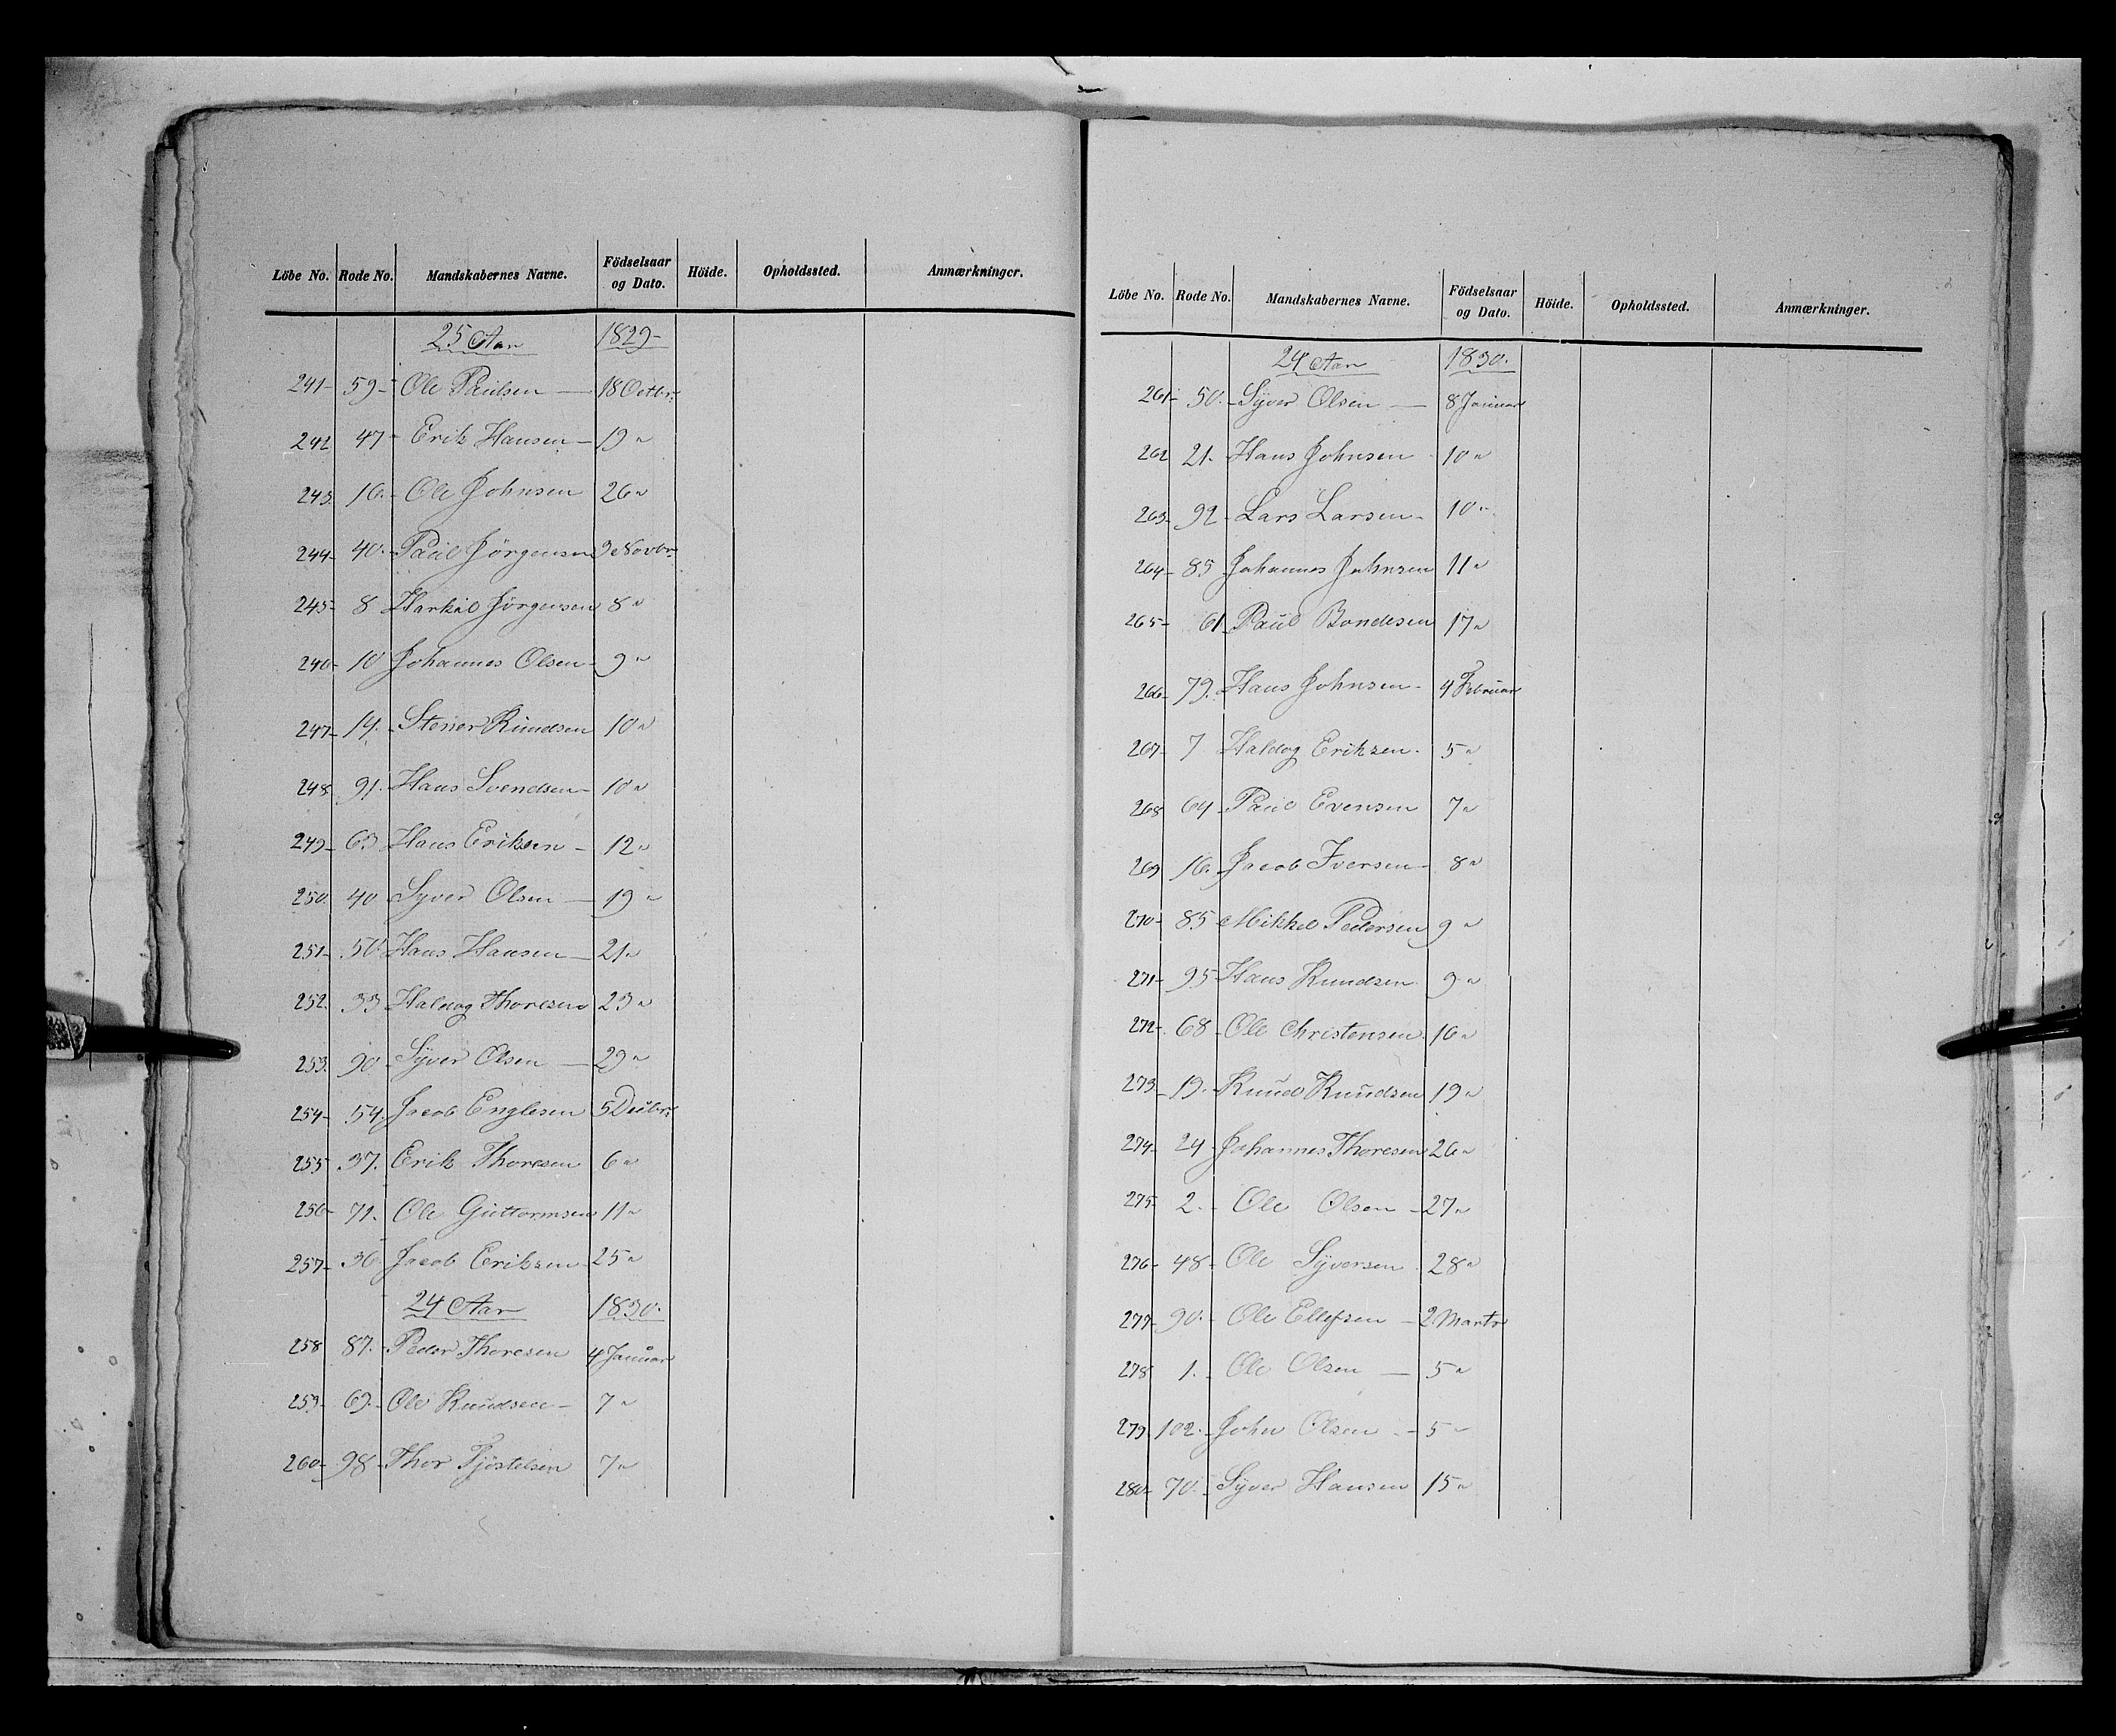 Löbe No. Rode No. Mandskabernes Navne. Födselsaar og Dato. Höide. Opholdssted. Anmærkninger.
25 Aar 1829-
241- 59- Ole Paulsen — 18 Octbr:
242 47- Erik Hansen — 19 "
243. 16.- Ole Johnsen 26 "
244- 40.- Paul Jörgensen 3 Novbr:
245- 8 Harkil Jörgensen 8 "
246- 10 Johannes Olsen - 9 "
247- 14. Stener Knudsen 10 "
248. 91. Hans Svendsen - 10 "
249- 63 Hans Eriksen - 12 "
250. 40 Syver Olsen — 19 "
251- 50. Hans Hansen — 21 "
252. 33 Haldog Thoresen 23 "
253. 90 Syver Olsen — 29 "
254- 54. Jacob Englesen 5 Decbr:
255- 37. Erik Thoresen 6 "
256- 71. Ole Guttormsen 11 "
257- 36 Jacob Eriksen 25 "
24 Aar 1830.
258 87.- Peder Thoresen 4 Januar
259- 69.- Ole Knudsen - 7 "
260- 98- Thor Tjöstelsen 7 "
Löbe No. Rode No. Mandskabernes Navne. Födselsaar og Dato. Höide. Opholdssted. Anmærkninger.
24 Aar 1830.
261- 50.- Syver Olsen — 8 Januar
262 21.- Hans Johnsen 10 "
263- 92- Lars Larsen - 10 "
264- 85 Johannes Johnsen 11 "
265- 61 Paul Bondesen 17 "
266- 79. Hans Johnsen - 4 Februar
267- 7 Haldog Eriksen. 5 "
268 64 Paul Evensen 7 "
269 16. Jacob Iversen - 8 "
270- 85 Mikkel Pedersen 9 "
271- 95 Hans Knudsen 9 "
272- 68- Ole Christensen 16 "
273- 19.- Knud Knudsen 19 "
274- 24 Johannes Thoresen 26 "
275- 2.- Ole Olsen - 27 "
276- 48- Ole Syversen 28 "
277- 90.- Ole Ellefsen - 2 Marts
278 1.- Ole Olsen — 5 "
279. 102.- John Olsen - 5 "
280- 70.- Syver Hansen 15 "